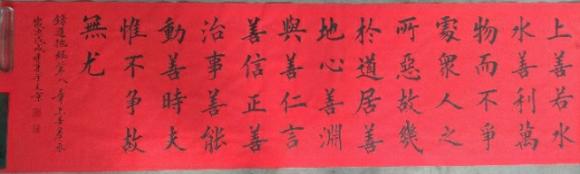 上善若水
水善利萬
物而不爭
處衆人之
所惡故幾
於道居善
地心善淵
與善仁言
善信正善
治事善能
動善時夫
惟不爭故
無尤
錄道德經第八章上善若水
歲次戊戌